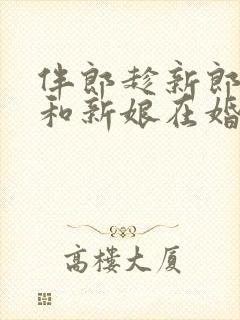 伴郎趁新郎
和新娘在婚
高楼大厦